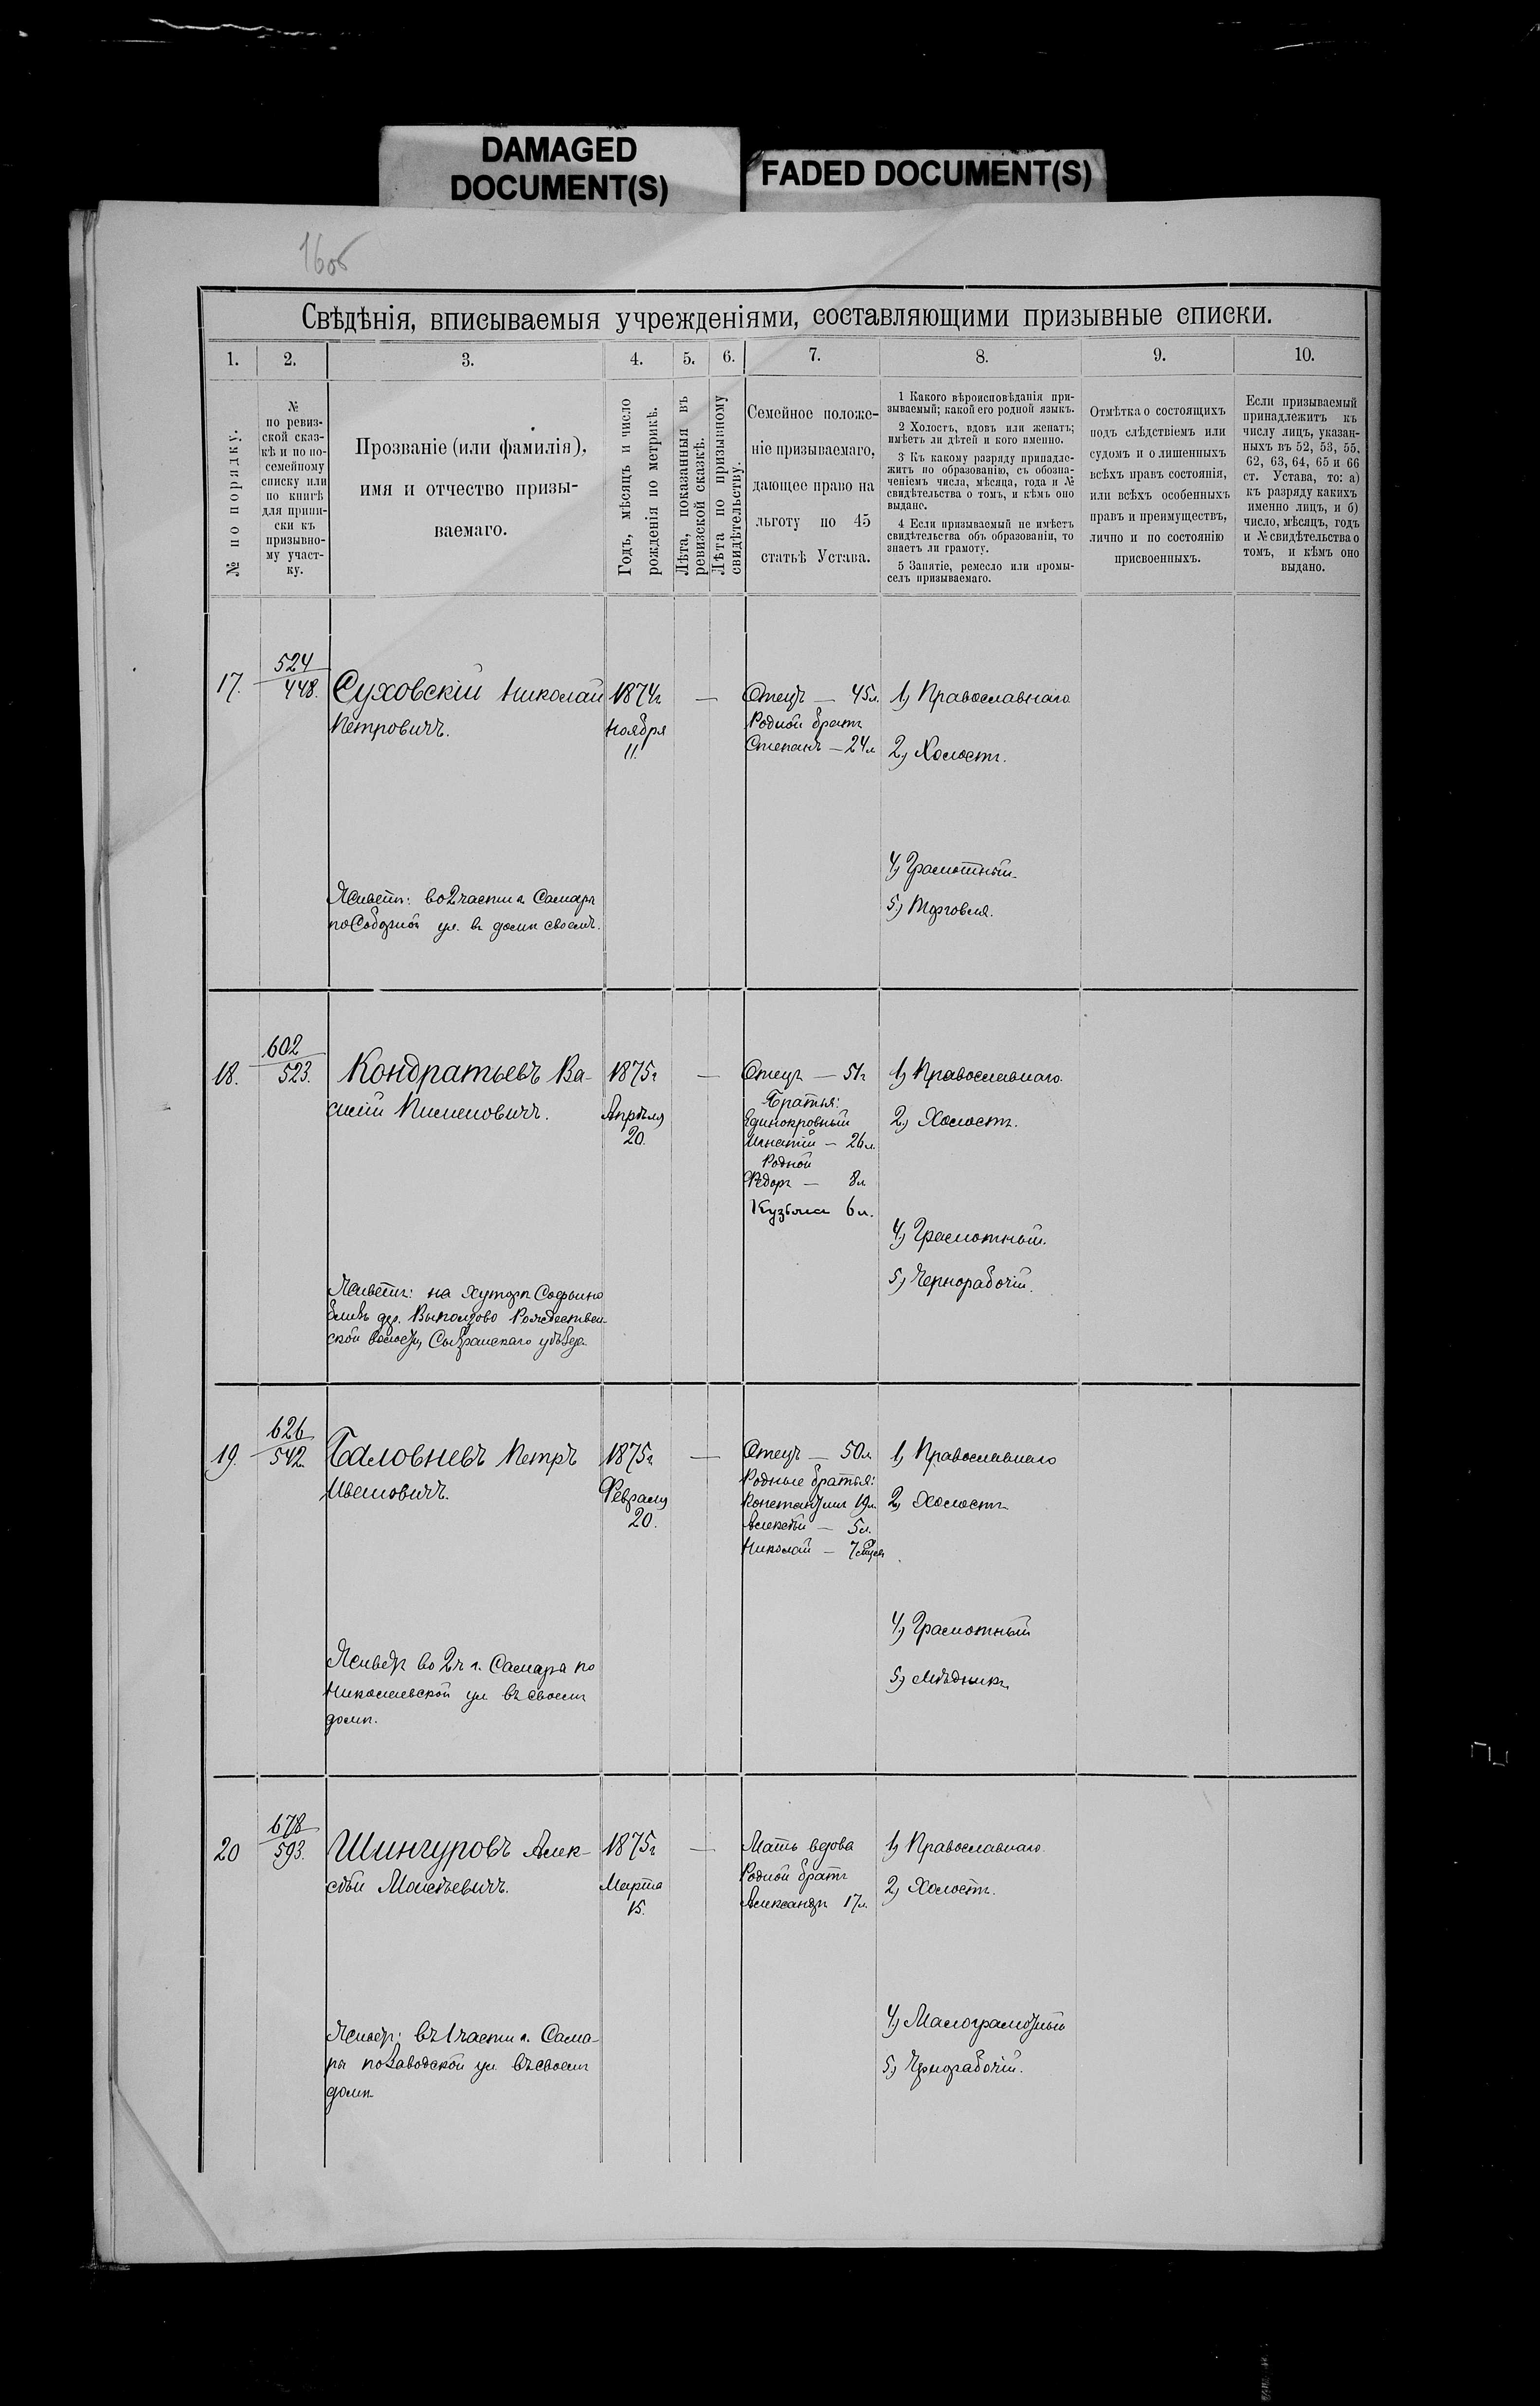 DAMAGED
DOCUMENT(S)
FADED DOCUMENT(S)
16об
Свѣдѣнія, вписываемыя учрежденіями, составляющими призывные списки.
1. 2. 3. 4. 5. 6. 7. 8. 9. 10.
№ по порядку.
№
по ревиз-
ской сказ-
кѣ и по по-
семейному
списку или
по книгѣ
для припи-
ски къ
призывно-
му участ-
ку.
Прозваніе (или фамилія),
имя и отчество призы-
ваемаго.
Годъ, мѣсяцъ и число
рожденія по метрикѣ.
Лѣта, показанныя въ
ревизской сказкѣ.
Лѣта по призывному
свидѣтельству.
Семейное положе-
ніе призываемаго,
дающее право на
льготу по 45
статьѣ Устава.
1 Какого вѣроисповѣданія при-
зываемый; какой его родной языкъ.
2 Холостъ, вдовъ или женатъ;
имѣетъ ли дѣтей и кого именно.
3 Къ какому разряду принадле-
житъ по образованію, съ обозна-
ченіемъ числа, мѣсяца, года и №
свидѣтельства о томъ, и кѣмъ оно
выдано.
4 Если призываемый не имѣетъ
свидѣтельства объ образованіи, то
знаетъ ли грамоту.
5 Занятіе, ремесло или промы-
селъ призываемаго.
Отмѣтка о состоящихъ
подъ слѣдствіемъ или
судомъ и о лишенныхъ
всѣхъ правъ состоянія,
или всѣхъ особенныхъ
правъ и преимуществъ,
лично и по состоянію
присвоенныхъ.
Если призываемый
принадлежитъ къ
числу лицъ, указан-
ныхъ въ 52, 53, 55,
62, 63, 64, 65 и 66
ст. Устава, то: а)
къ разряду какихъ
именно лицъ, и б)
число, мѣсяцъ, годъ
и № свидѣтельства о
томъ, и кѣмъ оно
выдано.
17.
524
448.
Суховскій Николай
Петровичъ.
1874г
Ноября
11.
—
Отецъ — 45л.
Родной братъ
Степанъ — 24л
1) Православнаго
2) Холостъ.
4) Грамотный.
5) Торговля.
Живетъ: во 2 части г. Самары
по Соборной ул. въ домѣ своемъ.
18.
602
523.
Кондратьевъ Ва-
силій Пименовичъ.
1875г
Апрѣля
20.
—
Отецъ — 51г
Братья:
Единокровный
Игнатій — 26л.
Родной
Ѳедоръ — 8л
Кузьма 6л.
1) Православнаго.
2) Холостъ.
4) Грамотный.
5) Чернорабочій.
Живетъ: на хуторѣ Софьино
близъ дер. Выползово Рождествен-
ской волости, Сызранскаго уѣзда.
19.
626
542.
Баловневъ Петръ
Ивановичъ.
1875г
Февраля
20.
—
Отецъ — 50л
Родные братья:
Константинъ 19л.
Алексѣй — 5л.
Николай — 7 мѣсяц
1) Православнаго
2) Холостъ
4) Грамотный
5) Мѣдникъ
Живетъ во 2 ч г. Самара по
Николаевской ул въ своемъ
домѣ.
20
678
593.
Шингуровъ Алек-
сѣй Моисѣевичъ.
1875г
Марта
15.
—
Мать вдова
Родной братъ
Александръ 17л.
1) Православнаго.
2) Холостъ.
4) Малограмотный
5) Чернорабочій.
Живетъ: въ 1 части г. Сама-
ры по Заводской ул въ своемъ
домѣ